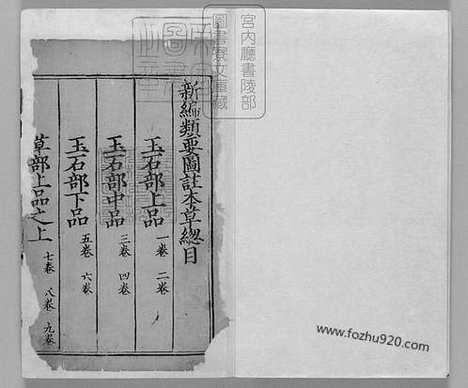 新編類要圖註本草總目
玉石部上品 一卷 二卷
玉石部中品 三卷 四卷
玉石部下品 五卷 六卷
草部上品之上 七卷 八卷 九卷
宮内廳書陵部
圖書寮文庫藏
https://www.fozhu920.com/